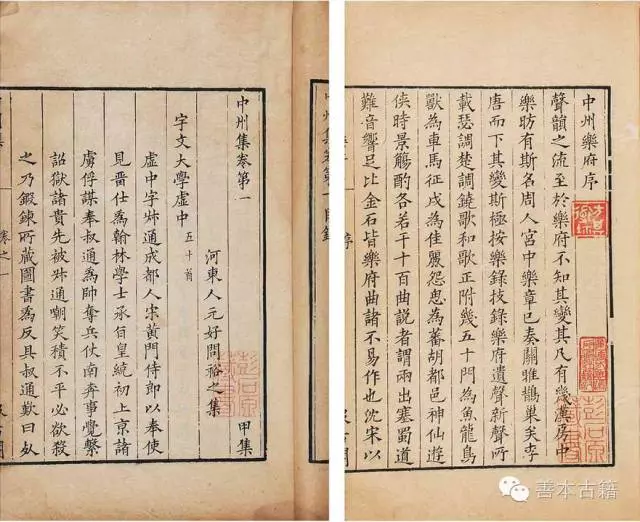 中州樂府序
聲韻之流至於樂府不知其變其凡有幾漢房中
樂昉有斯名周人宮中樂章已奏關雎鵲巢矣李
唐而下其變斯極按樂錄技錄樂府遺聲新聲所
載瑟調楚調鐃歌和歌正附幾五十門為魚龍鳥
獸為車馬征戍為佳麗怨思為蕃胡都邑神仙遊
俠時景觴酌各若干十百曲說者謂兩出塞蜀道
難音響足比金石皆樂府曲諸不易作也沈宋以
序
中州集卷第一目錄
中州集卷第一 甲集
河東人元好問裕之集
宇文大學虛中 五十首
虛中字叔通成都人宋黃門侍郎以奉使
見畱仕為翰林學士承旨皇統初上京諸
虜俘謀奉叔通為帥奪兵仗南奔事覺繫
詔獄諸貴先被叔通嘲笑積不平必欲殺
之乃鍛鍊所藏圖書為反具叔通歎曰死
卷之一
善本古籍